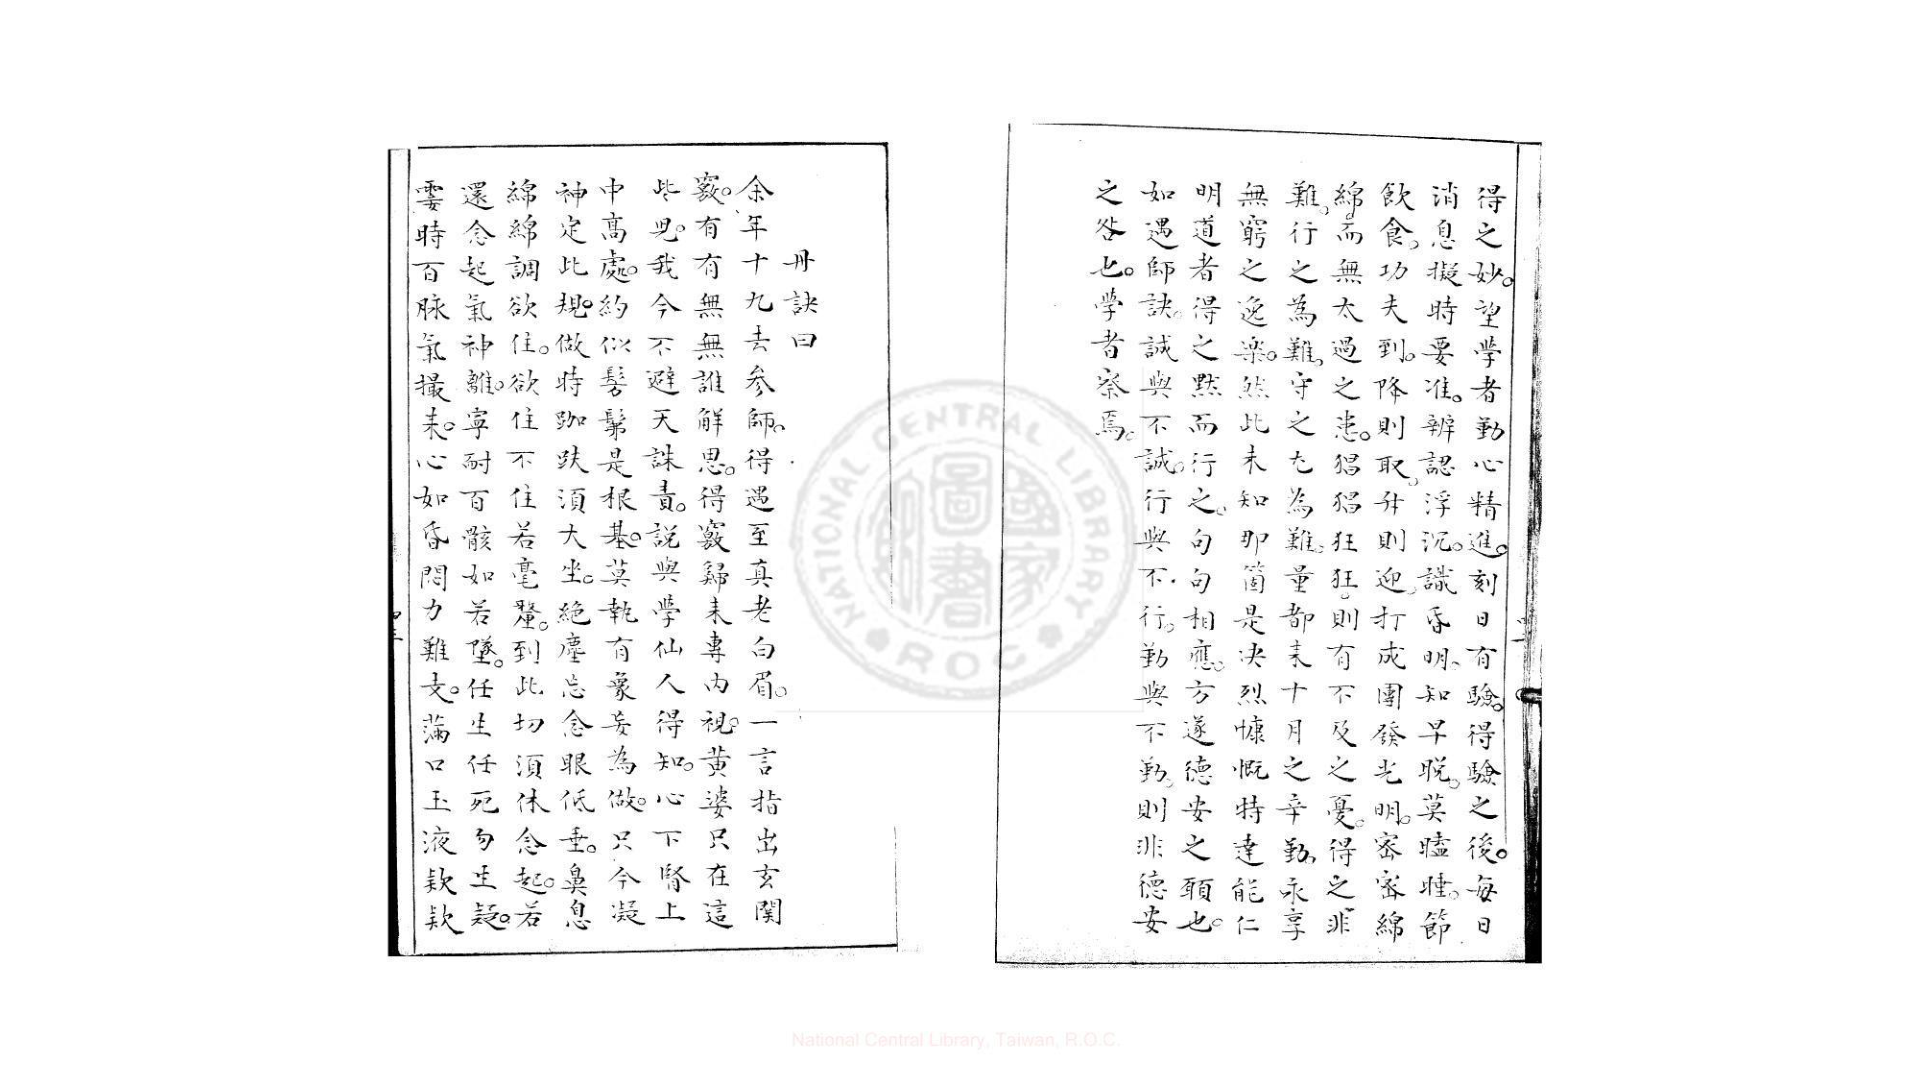 得之妙。望学者勤心精進。刻日有驗。得驗之後。每日
消息擬時要准。辨認浮沉。識昏明。知早晚。莫瞌睡。節
飲食。功夫到。降則取。升則迎。打成團發光明。密密綿
綿。而無太過之患。猖猖狂狂。則有不及之憂。得之非
難。行之為難。守之尤為難。量都來十月之辛勤。永享
無窮之逸樂。然此未知那箇是决烈慷慨特達能仁
明道者得之默而行之。句句相應。方遂德安之願也。
如遇師訣。誠與不誠。行與不行。勤與不勤。則非德安
之咎也。学者察焉。
丹訣曰
余年十九去参師。得遇至真老白眉。一言指出玄関
竅。有有無無誰解思。得竅歸来專内視。黄婆只在這
些兒。我今不避天誅責。説與學仙人得知。心下腎上
中高處。約似髣髴是根基。莫執有象妄為做。只今凝
神定此規。做時跏趺須大坐。絶塵忘念眼低垂。鼻息
綿綿調欲住。欲住不住若毫釐。到此切須休念起。若
還念起氣神離。寧耐百骸如若墜。任生任死勿生疑。
霎時百脉氣撮来。心如昏悶力難支。滿口玉液欵欵
National Central Library, Taiwan, R.O.C.
NATIONAL CENTRAL LIBRARY
ROC
國家圖書館